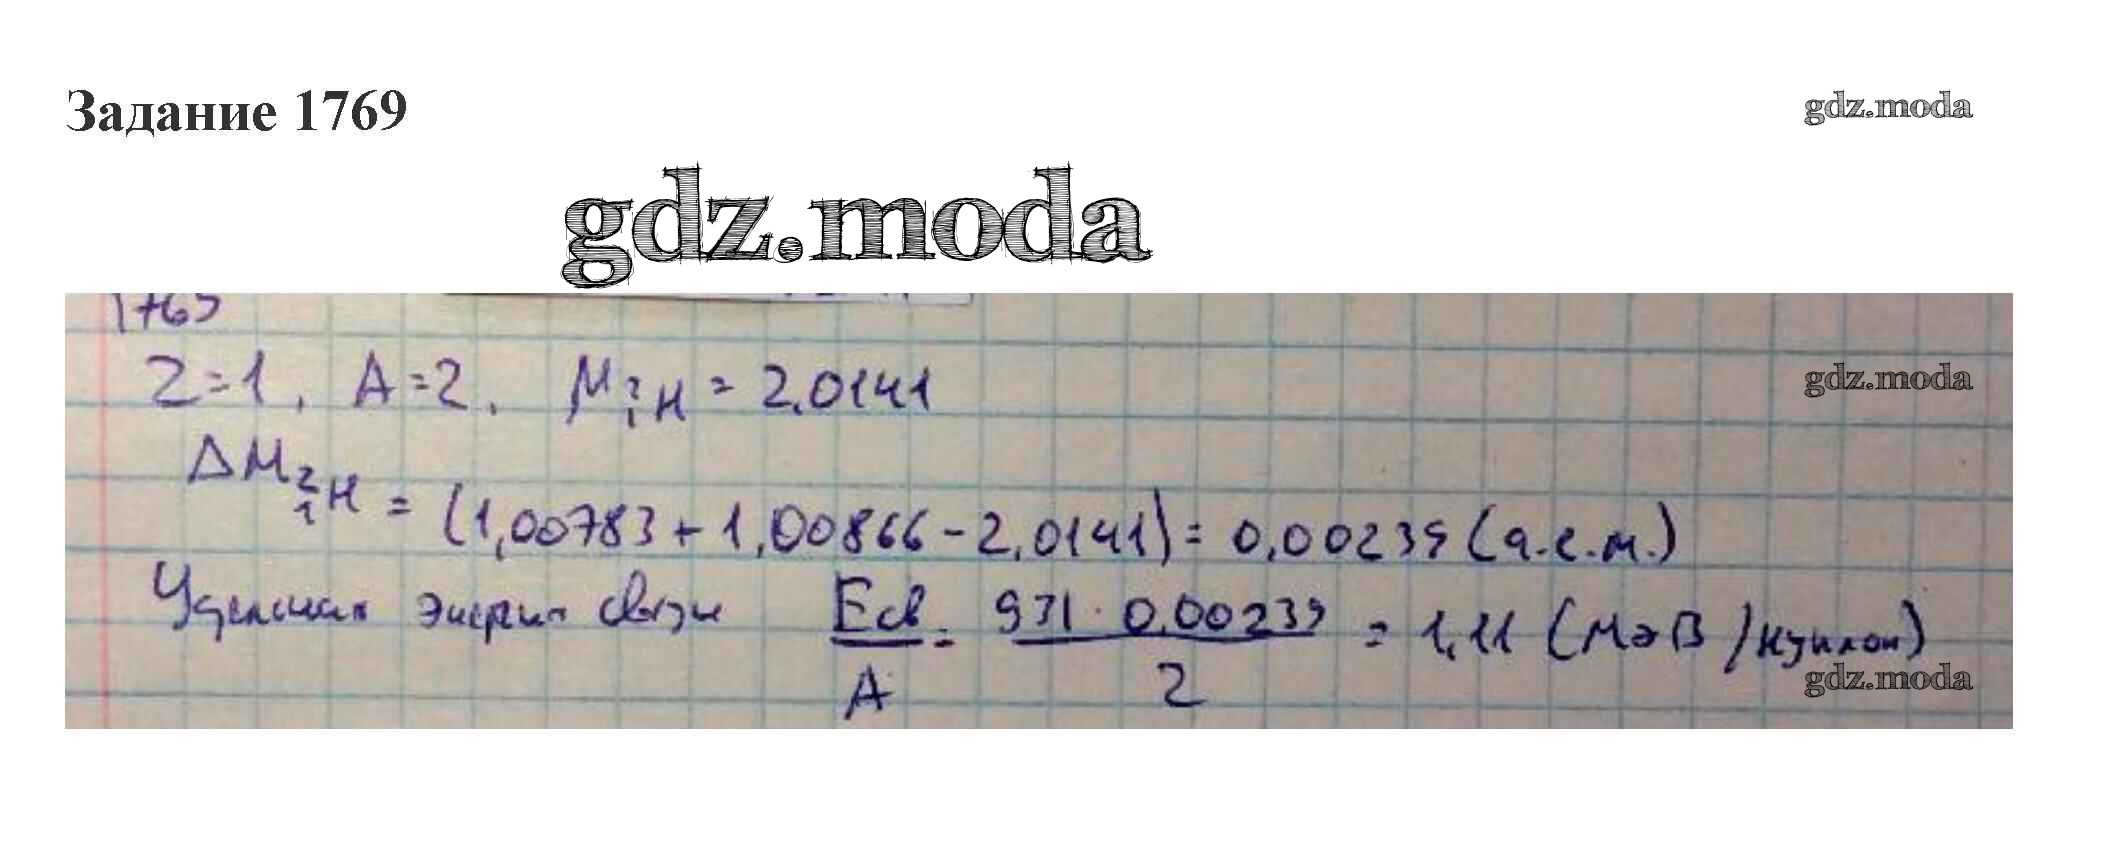 Задание 1769
gdz.moda
gdz.moda
1769
Z=1, A=2, M ²₁H = 2,0141
gdz.moda
ΔM ²₁H = (1,00783 + 1,00866 - 2,0141) = 0,00239 (а.е.м.)
Удельная энергия связи Eсв/A = 931 · 0,00239/2 = 1,11 (МэВ/нуклон)
gdz.moda